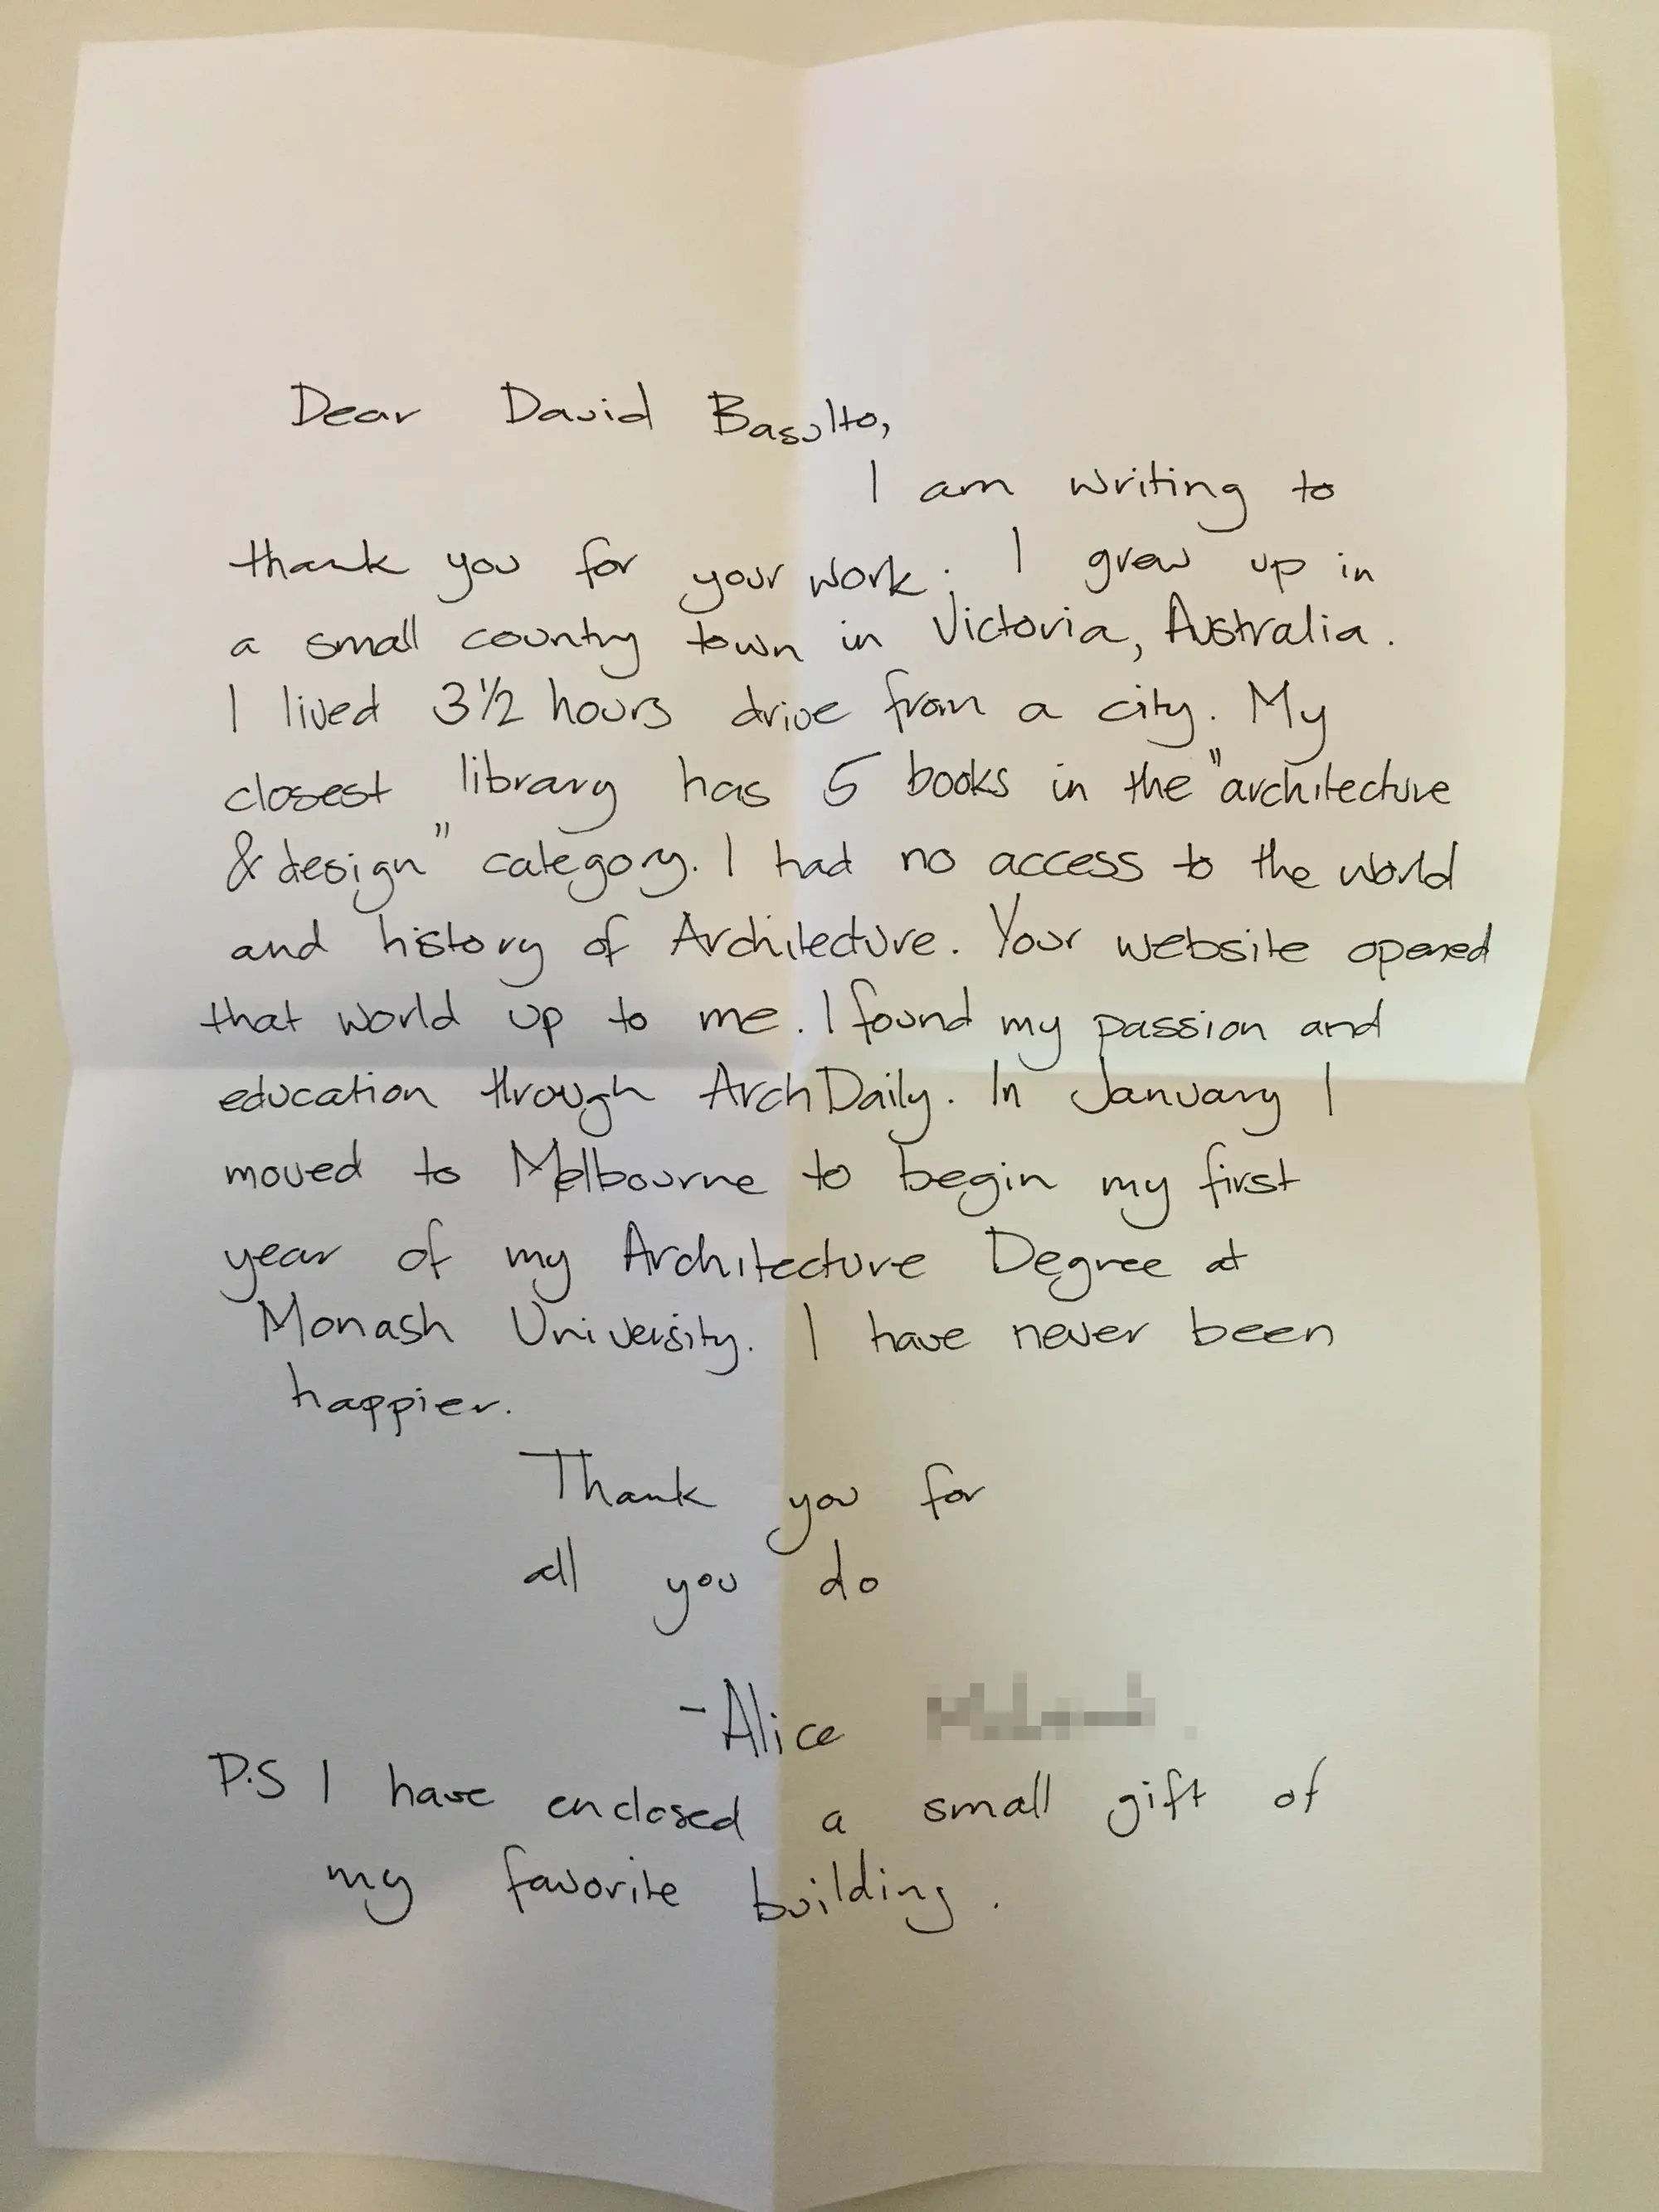 Dear David Basulto,
I am writing to
thank you for your work. I grew up in
a small country town in Victoria, Australia.
I lived 3½ hours drive from a city. My
closest library has 5 books in the "architecture
& design" category. I had no access to the world
and history of Architecture. Your website opened
that world up to me. I found my passion and
education through ArchDaily. In January I
moved to Melbourne to begin my first
year of my Architecture Degree at
Monash University. I have never been
happier.
Thank you for
all you do
-Alice
P.S I have enclosed a small gift of
my favorite building.